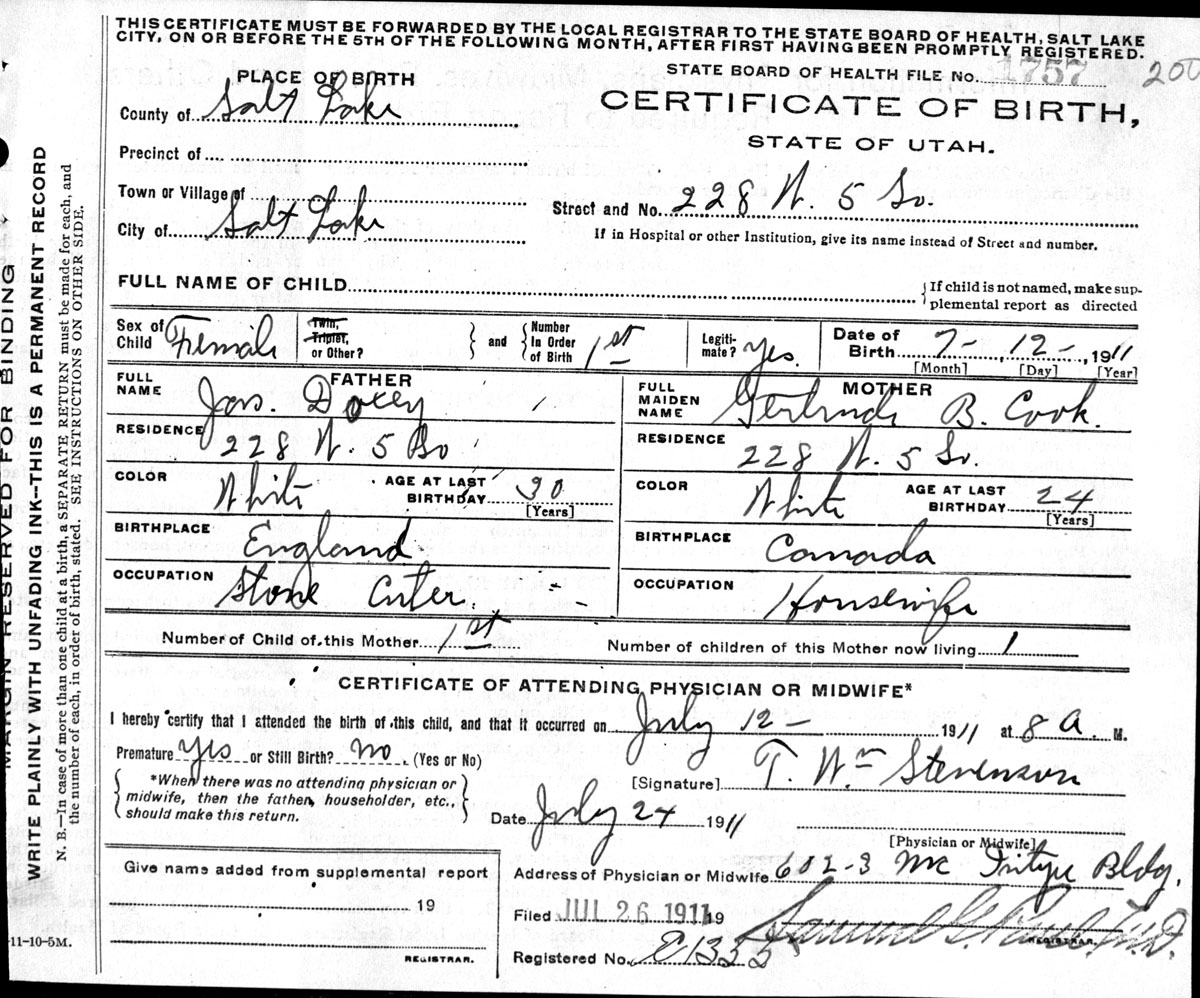 THIS CERTIFICATE MUST BE FORWARDED BY THE LOCAL REGISTRAR TO THE STATE BOARD OF HEALTH, SALT LAKE
CITY, ON OR BEFORE THE 5TH OF THE FOLLOWING MONTH, AFTER FIRST HAVING BEEN PROMPTLY REGISTERED.
STATE BOARD OF HEALTH FILE No. 1757 200
PLACE OF BIRTH
CERTIFICATE OF BIRTH,
County of Salt Lake
STATE OF UTAH.
Precinct of
Town or Village of
Street and No. 228 W. 5 So.
City of Salt Lake
If in Hospital or other Institution, give its name instead of Street and number.
FULL NAME OF CHILD
If child is not named, make sup-
plemental report as directed
Sex of Child Female
Twin, Triplet, or Other?
and Number In Order of Birth 1st
Legiti-mate? yes
Date of Birth 7- 12-, 1911
[Month] [Day] [Year]
FATHER
FULL NAME Jas. Doxey
MOTHER
FULL MAIDEN NAME Gertrude B. Cook.
RESIDENCE 228 W. 5 So
RESIDENCE 228 W. 5 So.
COLOR White AGE AT LAST BIRTHDAY 30 [Years]
COLOR White AGE AT LAST BIRTHDAY 24 [Years]
BIRTHPLACE England
BIRTHPLACE Canada
OCCUPATION Stone Cuter.
OCCUPATION Housewife
Number of Child of this Mother 1st Number of children of this Mother now living 1
CERTIFICATE OF ATTENDING PHYSICIAN OR MIDWIFE*
I hereby certify that I attended the birth of this child, and that it occurred on July 12- 1911 at 8 a. M.
Premature yes or Still Birth? no. (Yes or No)
[Signature] T. Wm Stevenson
*When there was no attending physician or
midwife, then the father, householder, etc.,
should make this return.
Date July 24 1911
[Physician or Midwife]
Give name added from supplemental report
Address of Physician or Midwife 602-3 Mc Intyre Bldg.
19
Filed JUL 26 1911 19 Samuel G. Paul M.D.
REGISTRAR.
Registered No. E1333
REGISTRAR.
-11-10-5M.
MARGIN RESERVED FOR BINDING
WRITE PLAINLY WITH UNFADING INK--THIS IS A PERMANENT RECORD
N. B.--In case of more than one child at a birth, a SEPARATE RETURN must be made for each, and
the number of each, in order of birth, stated. SEE INSTRUCTIONS ON OTHER SIDE.